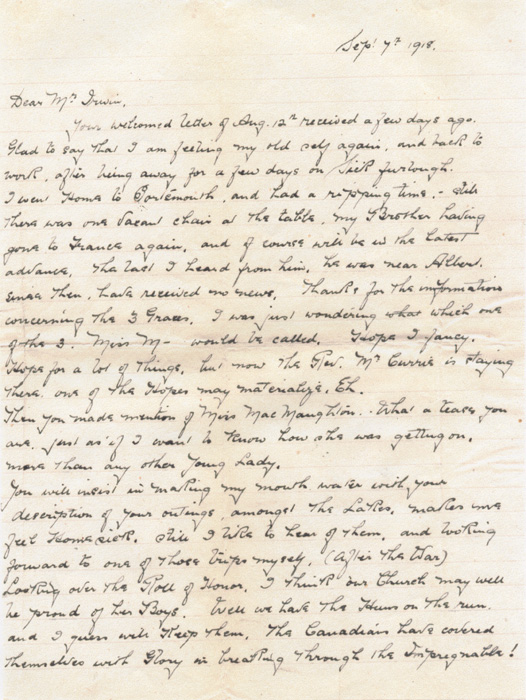 Sept 7th 1918.
Dear Mrs Irwin,
Your welcomed letter of Aug. 12th received a few days ago.
Glad to say that I am feeling my old self again, and back to
work, after being away for a few days on Sick furlough.
I went Home to Portsmouth, and had a ripping time, - 
there was one Vacant chair at the table, my Brother having
gone to France again, and of course will be in the latest
advance. The last I heard from him, he was near Albert.
since then, have received no news. Thanks for the information
concerning the 3 Graces. I was just wondering what which one
of the 3. Miss M- would be called. Hope I fancy.
Hope for a lot of things, but now the Rev. Mr Currie is staying
there, one of the Hopes may materialize. Eh.
Then you made mention of Miss MacNaughton. What a tease you
are. just as if I want to know how she was getting on,
more than any other Young Lady.
You will insist in making my mouth water with your
description of your outings, amongst the Lakes, makes me
feel Homesick. still I like to hear of them, and looking
forward to one of those trips myself, (After the War)
Looking over the Roll of Honor, I think our Church may well
be proud of her Boys. Well we have the Huns on the run.
and I guess will Keep them. The Canadians have covered
themselves with Glory in breaking through the Impregnable!